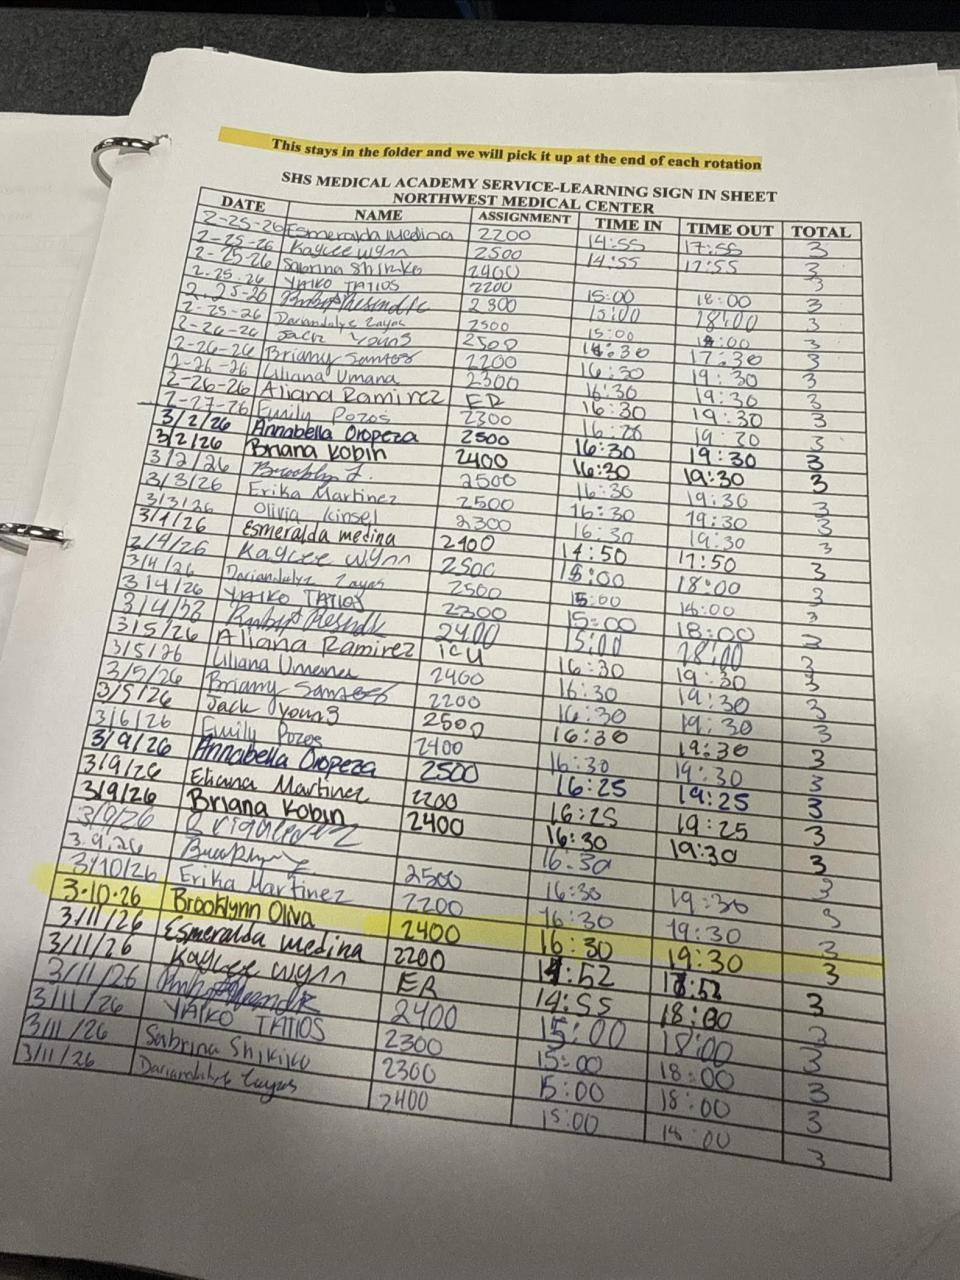 This stays in the folder and we will pick it up at the end of each rotation
SHS MEDICAL ACADEMY SERVICE-LEARNING SIGN IN SHEET
NORTHWEST MEDICAL CENTER
DATE NAME ASSIGNMENT TIME IN TIME OUT TOTAL
2-25-26 Esmeralda Medina 2200 14:55 17:55 3
2-25-26 Kaylee Wynn 2500 14:55 17:55 3
2-25-26 Sabrina 2400 3
2-25-26 YAIKO TATIOS 2200 15:00 18:00 3
2-25-26 2300 15:00 18:00 3
2-25-26 2500 15:00 18:00 3
2-26-26 Jack Young 2500 14:30 17:30 3
2-26-26 Briany Santos 2200 16:30 19:30 3
2-26-26 Liliana Umana 2300 16:30 19:30 3
2-26-26 Aliana Ramirez ER 16:30 19:30 3
2-27-26 Emily Pozos 2300 19:20 3
3/2/26 Annabella Oropeza 2500 16:30 19:30 3
3/2/26 Briana Kobin 2400 16:30 19:30 3
3/2/26 2500 16:30 19:30 3
3/3/26 Erika Martinez 2500 16:30 19:30 3
3/3/26 Olivia Kinsel 2300 16:30 19:30 3
3/4/26 Esmeralda medina 2400 14:50 17:50 3
3/4/26 Kaylee Wynn 2500 15:00 18:00 3
3/4/26 2500 15:00 18:00 3
3/4/26 YAIKO TATIOS 2300 15:00 18:00 3
2400 15:00 18:00 3
3/5/26 Aliana Ramirez icu 16:30 19:30 3
3/5/26 Liliana Umana 2400 16:30 19:30 3
3/5/26 Briany Santos 2200 16:30 19:30 3
3/5/26 Jack Young 2500 16:30 19:30 3
3/6/26 Emily Pozos 2400 16:30 19:30 3
3/9/26 Annabella Oropeza 2500 16:25 19:25 3
3/9/26 Eliana Martinez 2200 16:25 19:25 3
3/9/26 Briana Kobin 2400 16:30 19:30 3
3/9/26 16:30 3
3.9.26 2500 16:30 19:30 3
3/10/26 Erika Martinez 2200 16:30 19:30 3
3-10-26 Brooklynn Oliva 2400 16:30 19:30 3
3/11/26 Esmeralda medina 2200 14:52 3
3/11/26 Kaylee Wynn ER 14:55 18:00 3
3/11/26 2400 15:00 18:00 3
3/11/26 YAIKO TATIOS 2300 15:00 18:00 3
3/11/26 Sabrina 2300 15:00 18:00 3
3/11/26 2400 15:00 18:00 3